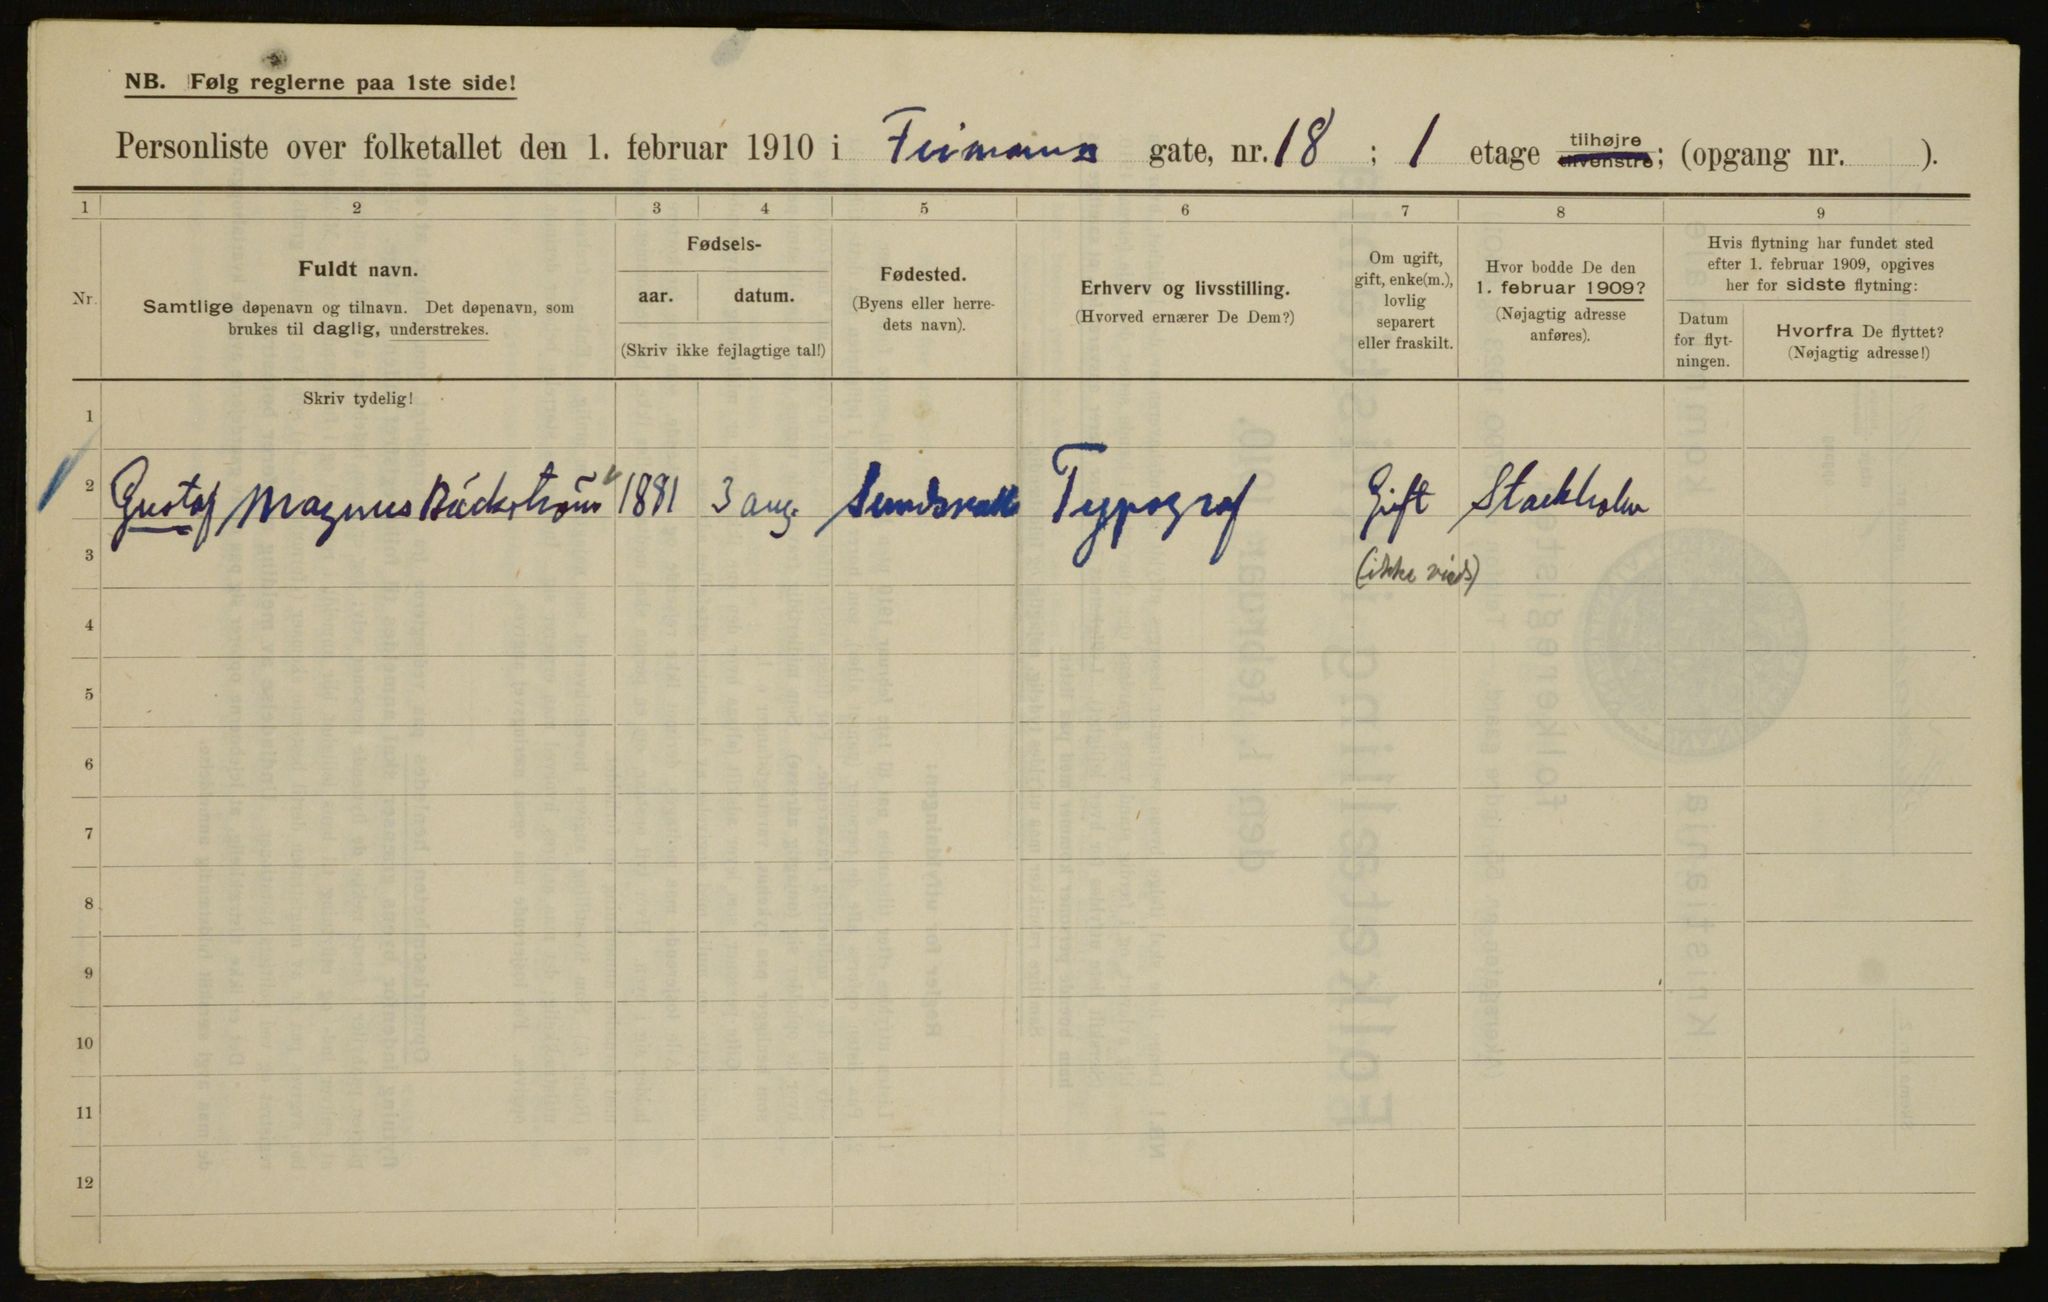 NB. Følg reglerne paa 1ste side!
Personliste over folketallet den 1. februar 1910 i gate, nr. 18 ; 1 etage tilhøjre tilvenstre; (opgang nr. ).
1 2 3 4 5 6 7 8 9
Nr.
Fuldt navn.
Samtlige døpenavn og tilnavn. Det døpenavn, som
brukes til daglig, understrekes.
Fødsels-
aar. datum.
(Skriv ikke fejlagtige tal!)
Fødested.
(Byens eller herre-
dets navn).
Erhverv og livsstilling.
(Hvorved ernærer De Dem?)
Om ugift,
gift, enke(m.),
lovlig
separert
eller fraskilt.
Hvor bodde De den
1. februar 1909?
(Nøjagtig adresse
anføres).
Hvis flytning har fundet sted
efter 1. februar 1909, opgives
her for sidste flytning:
Datum
for flyt-
ningen.
Hvorfra De flyttet?
(Nøjagtig adresse!)
Skriv tydelig!
1
2 Gustaf Magnus Bäckström 1881 3 aug. Sundsvall Typograf Gift Stockholm
3 (ikke viet)
4
5
6
7
8
9
10
11
12